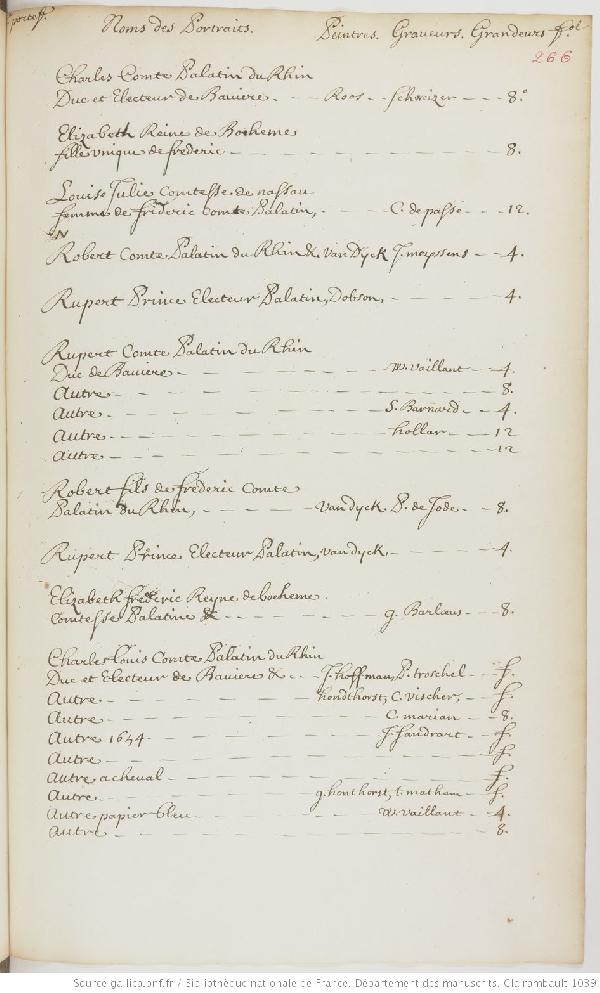 portef.
Noms des Portraits. Peintres. Graveurs. Grandeurs fol
266
Charles Comte Palatin du Rhin
Duc et Electeur de Baviere. Roos schweizer 8.°
Elizabeth Reine de Boeheme
fille unique de frederic 8.
Louise Julie Comtesse de nassau
femme de frideric Comte Palatin, C. de passe 12.
N
Robert Comte Palatin du Rhin &c. Van Dyck J. meyssens 4.
Rupert Prince Electeur Palatin, Dobson, 4.
Rupert Comte Palatin du Rhin
Duc de Baviere W. Vaillant 4.
Autre 8.
Autre S. Barnard 4.
Autre hollar 12
Autre 12
Robert fils de frederic Comte
Palatin du Rhin, Van dyck P. de Jode 8.
Rupert Prince Electeur Palatin, Van dyck 4.
Elizabeth frederic Reyne de boeheme
Comtesse Palatine & g. Barlæus 8.
Charles Louis Comte Palatin du Rhin
Duc et Electeur de Baviere &c. J. hoffman, P. troschel f.
Autre hondthorst, C. vischer, f.
Autre C. marian 8.
Autre 1654 J. sandrart f.
Autre f.
Autre a cheval f.
Autre g. honthorst, t. matham f.
Autre papier bleu W. Vaillant 4.
Autre 8.
Source gallica.bnf.fr / Bibliothèque nationale de France. Département des manuscrits. Clairambault 1039